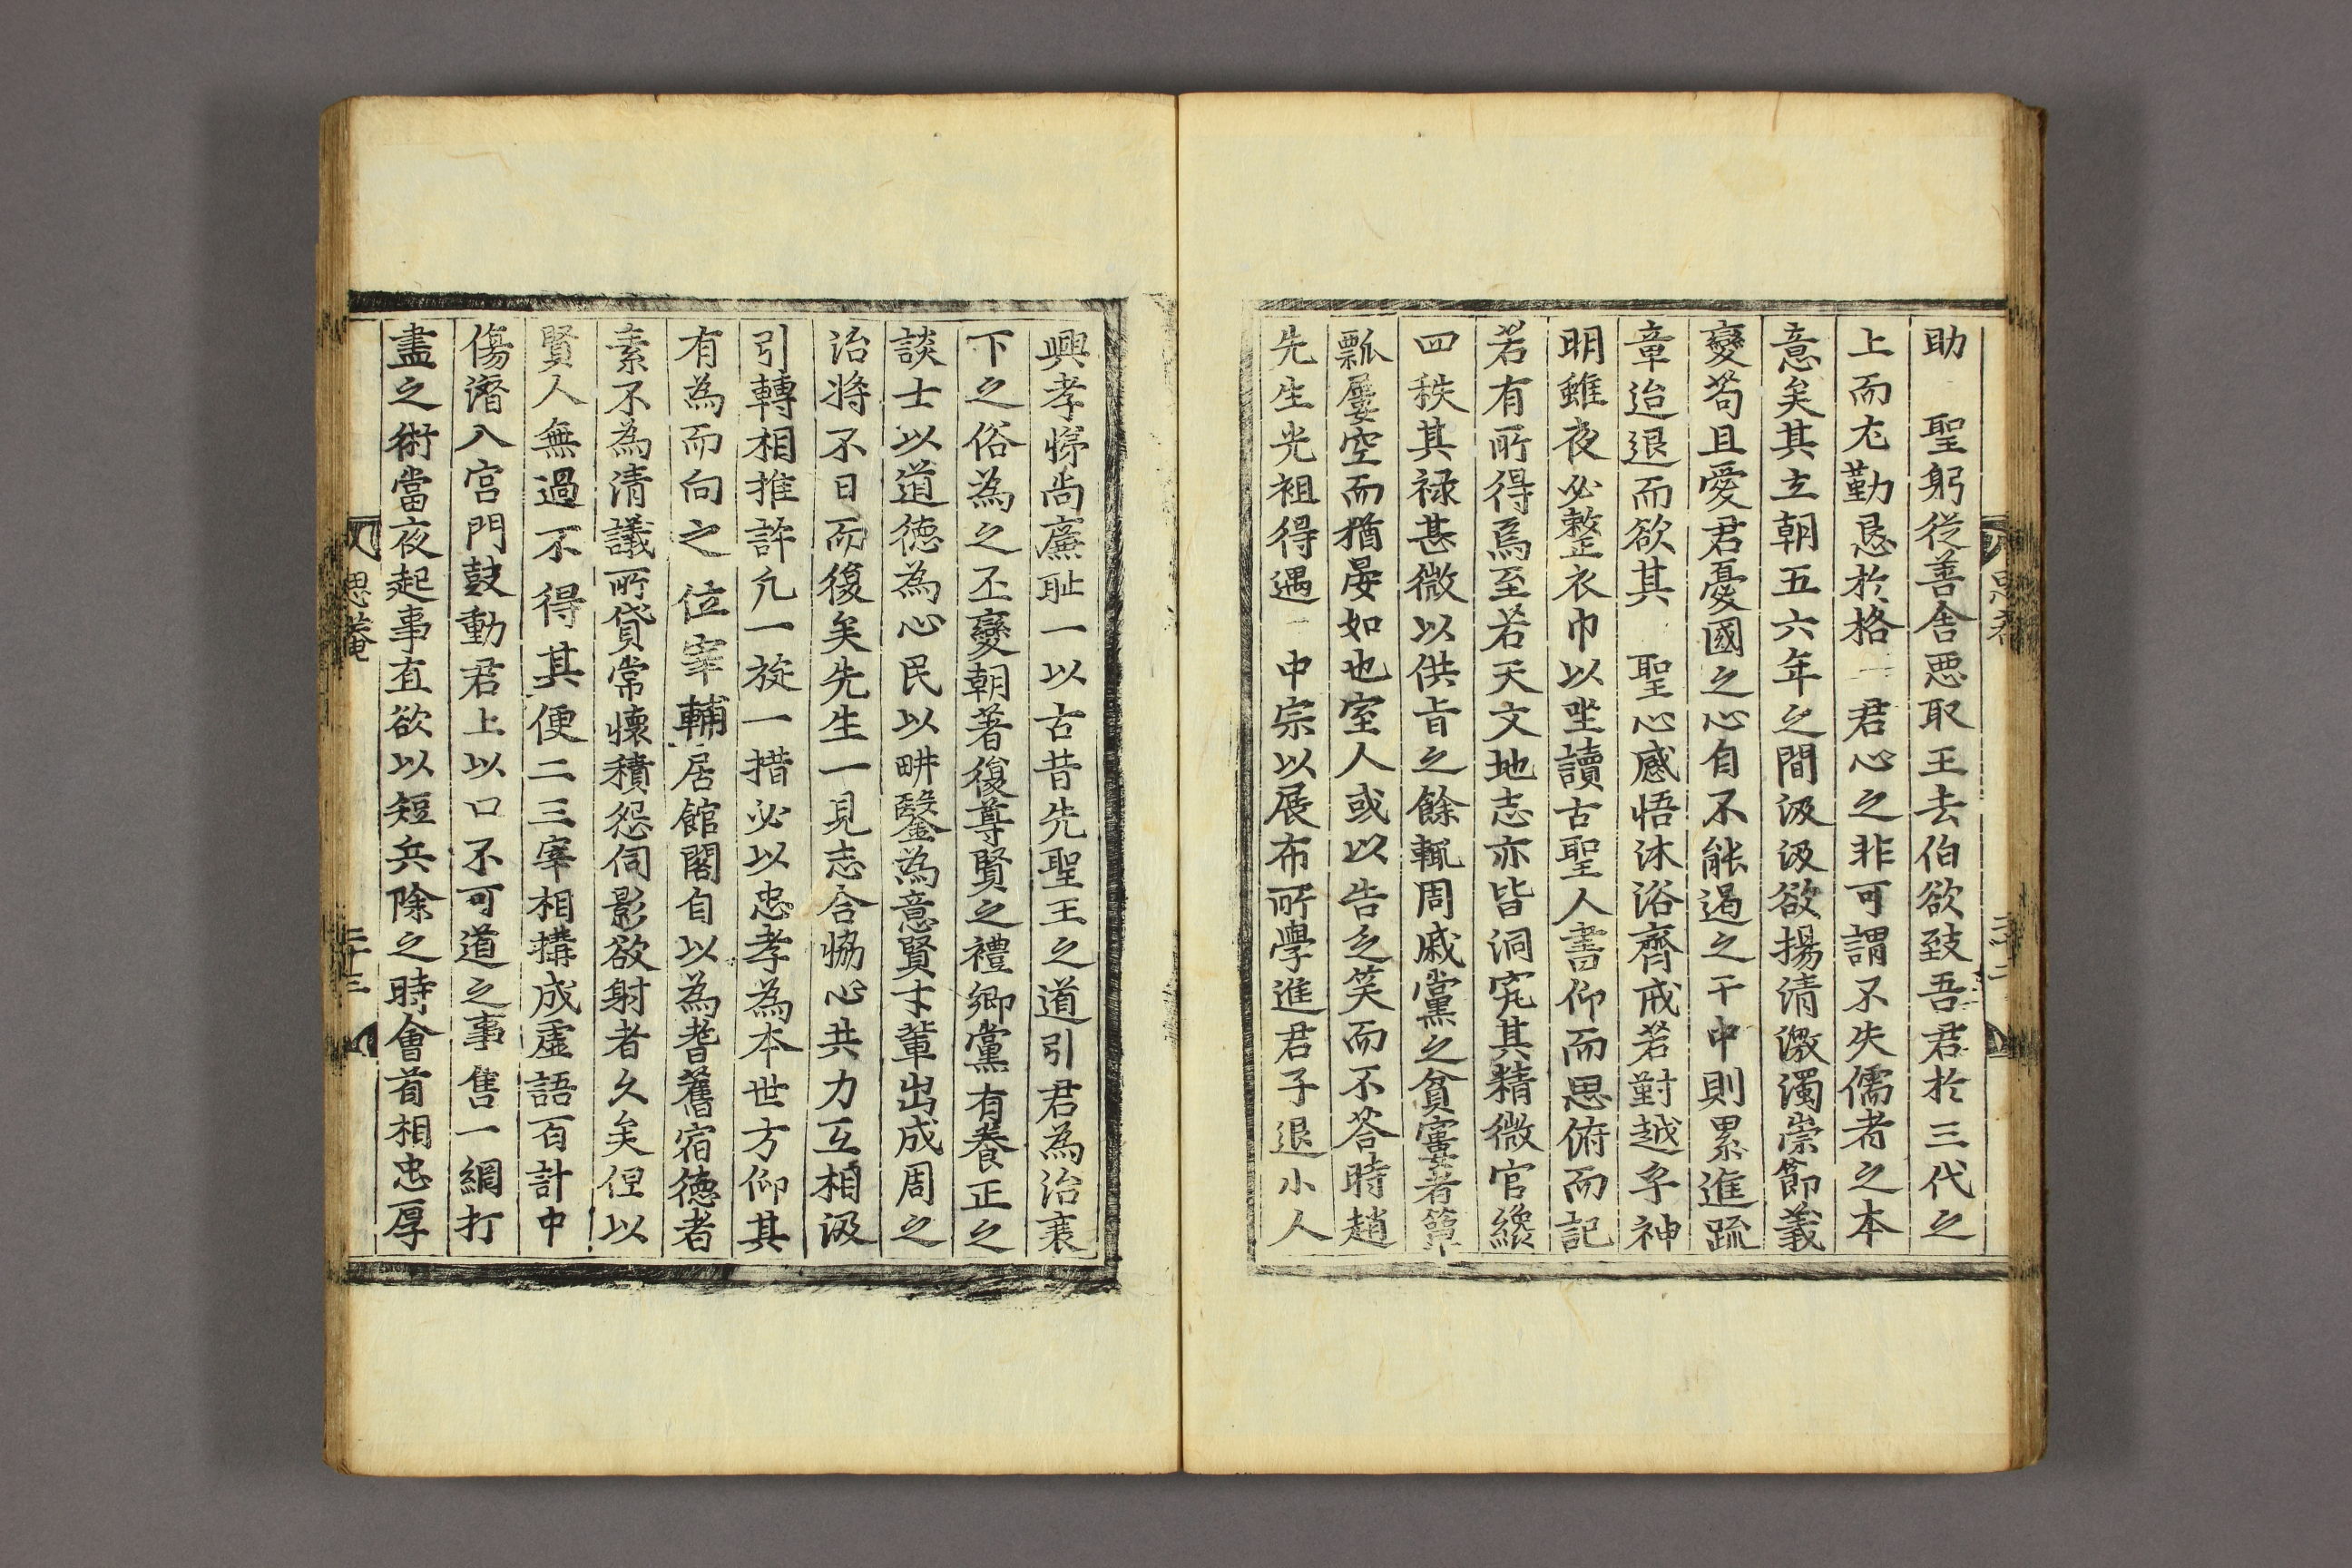 助 聖躬從善舍惡取王去伯欲致吾君於三代之
上而尤勤恳於格 君心之非可謂不失儒者之本
意矣其立朝五六年之間汲汲欲揚清激濁崇節義
變苟且愛君憂國之心自不能遏之于中則累進疏
章迨退而欲其 聖心感悟沐浴齊戒若對越乎神
明雖夜必整衣巾以坐讀古聖人書仰而思俯而記
若有所得焉至若天文地志亦皆洞究其精微官纔
四秩其祿甚微以供旨之餘輒周戚黨之貧窶者簞
瓢屢空而猶晏如也室人或以告之笑而不答時趙
先生光祖得遇 中宗以展布所學進君子退小人
思菴
二十二
興孝悌尚廉耻一以古昔先聖王之道引君為治衰
下之俗為之丕變朝著復尊賢之禮鄉黨有養正之
談士以道德為心民以畊鑿為意賢才輩出成周之
治將不日而復矣先生一見志合恊心共力互相汲
引轉相推許凢一旋一措必以忠孝為本世方仰其
有為而向之位宰輔居館閣自以為耆舊宿德者
素不為清議所貸常懷積怨伺影欲射者久矣俚以
賢人無過不得其便二三宰相搆成虛語百計中
傷潛入宮門鼓動君上以口不可道之事售一網打
盡之術當夜起事直欲以短兵除之時會首相忠厚
思菴
二十三